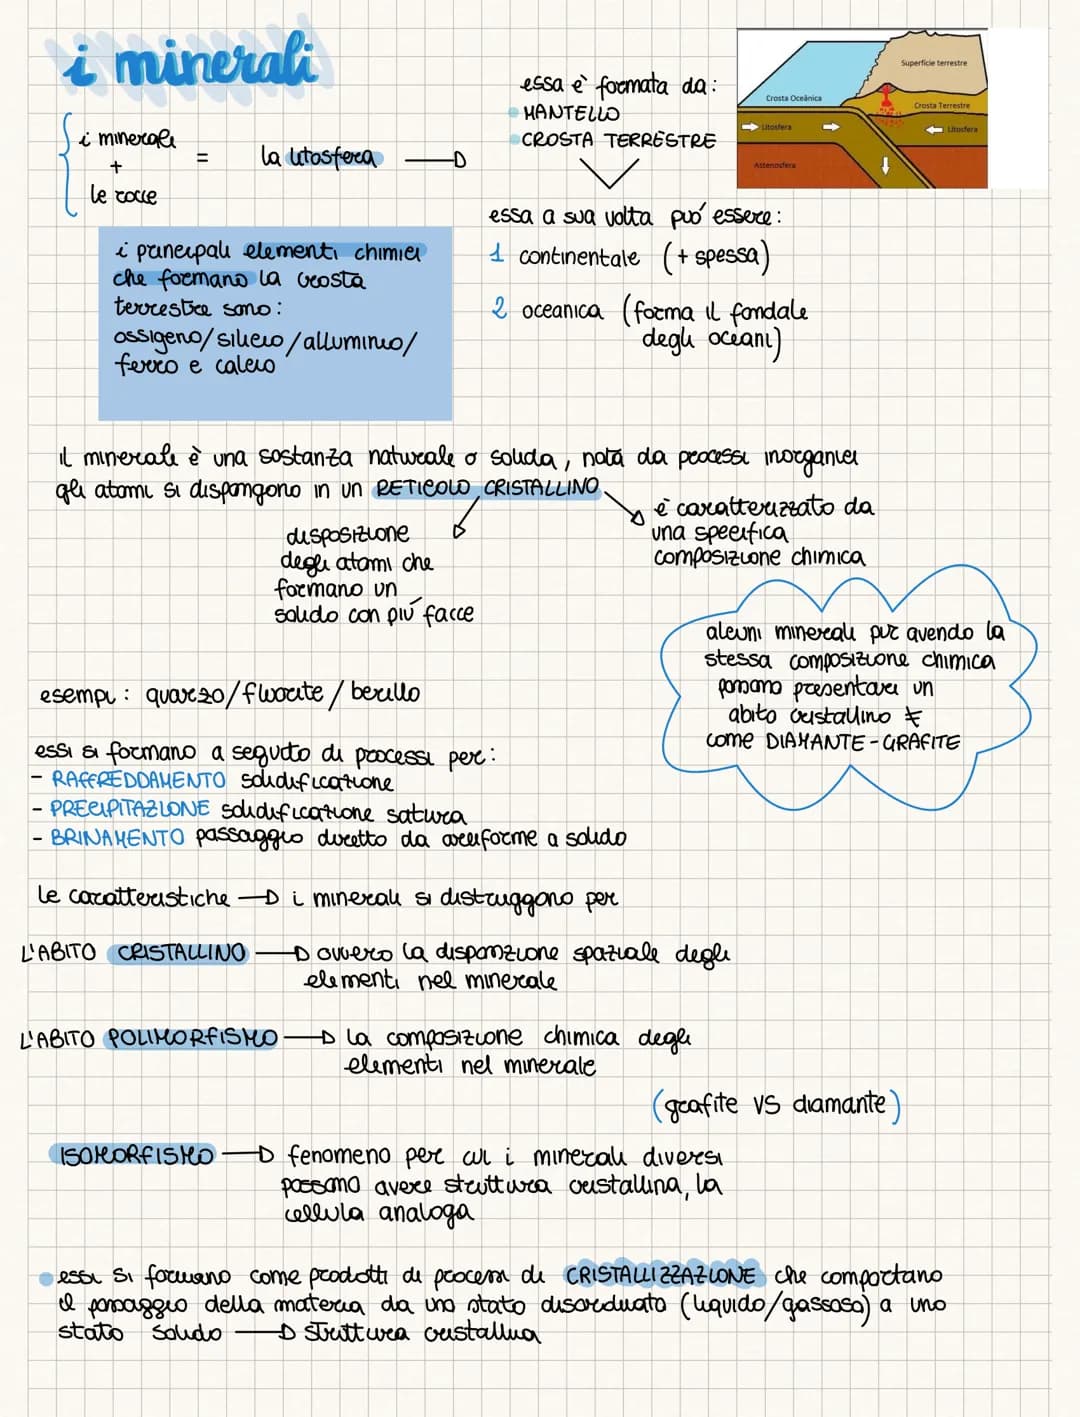 i minerali
i minerali
+
le rocce
=
la litosfera
essa è formata da:
MANTELLO
CROSTA TERRESTRE
Superficie terrestre
Crosta Oceànica
Crosta Terrestre
Litosfera
Litosfera
Astenosfera
essa a sua volta può essere:
1 continentale (+ spessa)
2 oceanica (forma il fondale
degli oceani)
i principali elementi chimici
che formano la crosta
terrestre sono:
ossigeno/silicio/alluminio/
ferro e calcio
il minerale è una sostanza naturale o solida, nata da processi inorganici
gli atomi si dispongono in un RETICOLO CRISTALLINO
disposizione
degli atomi che
formano un
solido con più facce
è caratterizzato da
una specifica
composizione chimica
alcuni minerali pur avendo la
stessa composizione chimica
possono presentare un
abito cristallino ≠
come DIAMANTE-GRAFITE
esempi: quarzo/fluorite/berillo
essi si formano a seguito di processi per:
- RAFFREDDAMENTO solidificazione
- PRECIPITAZIONE solidificazione satura
- BRINAMENTO passaggio diretto da aeriforme a solido
le caratteristiche → i minerali si distruggono per
L'ABITO CRISTALLINO → ovvero la disposizione spaziale degli
elementi nel minerale
L'ABITO POLIMORFISMO → la composizione chimica degli
elementi nel minerale
(grafite VS diamante)
ISOMORFISMO → fenomeno per cui i minerali diversi
possono avere struttura cristallina, la
cellula analoga
essi si formano come prodotti di processi di CRISTALLIZZAZIONE che comportano
il passaggio della materia da uno stato disordinato (liquido/gassoso) a uno
stato solido → struttura cristallina